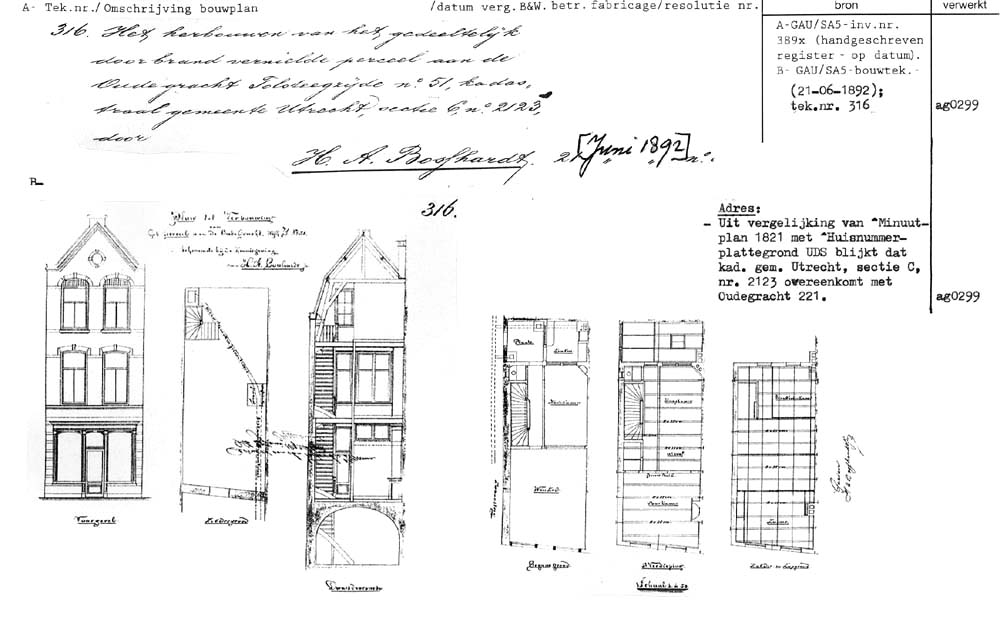 A- Tek.nr./Omschrijving bouwplan
/datum verg. B&W. betr. fabricage/resolutie nr.
bron
verwerkt
316. Het herbouwen van het gedeeltelijk
door brand vernielde perceel aan de
Oude gracht Tolsteegzijde nº 51, kadas,
traal gemeente Utrecht, sectie C, nº 2123,
door
H. A. Bosshardt. 21 [Juni 1892] nº.
A-GAU/SA5-inv.nr.
389x (handgeschreven
register - op datum).
B- GAU/SA5-bouwtek. -
(21-06-1892);
tek.nr. 316
ag0299
B-
316.
Adres:
- Uit vergelijking van "Minuut-
plan 1821 met "Huisnummer-
plattegrond UDS blijkt dat
kad. gem. Utrecht, sectie C,
nr. 2123 overeenkomt met
Oudegracht 221.
ag0299
Voorgevel
Keldergrond
Doorsnede
Begane grond
Verdieping
Schaal
Winkel
Plaats
Keuken